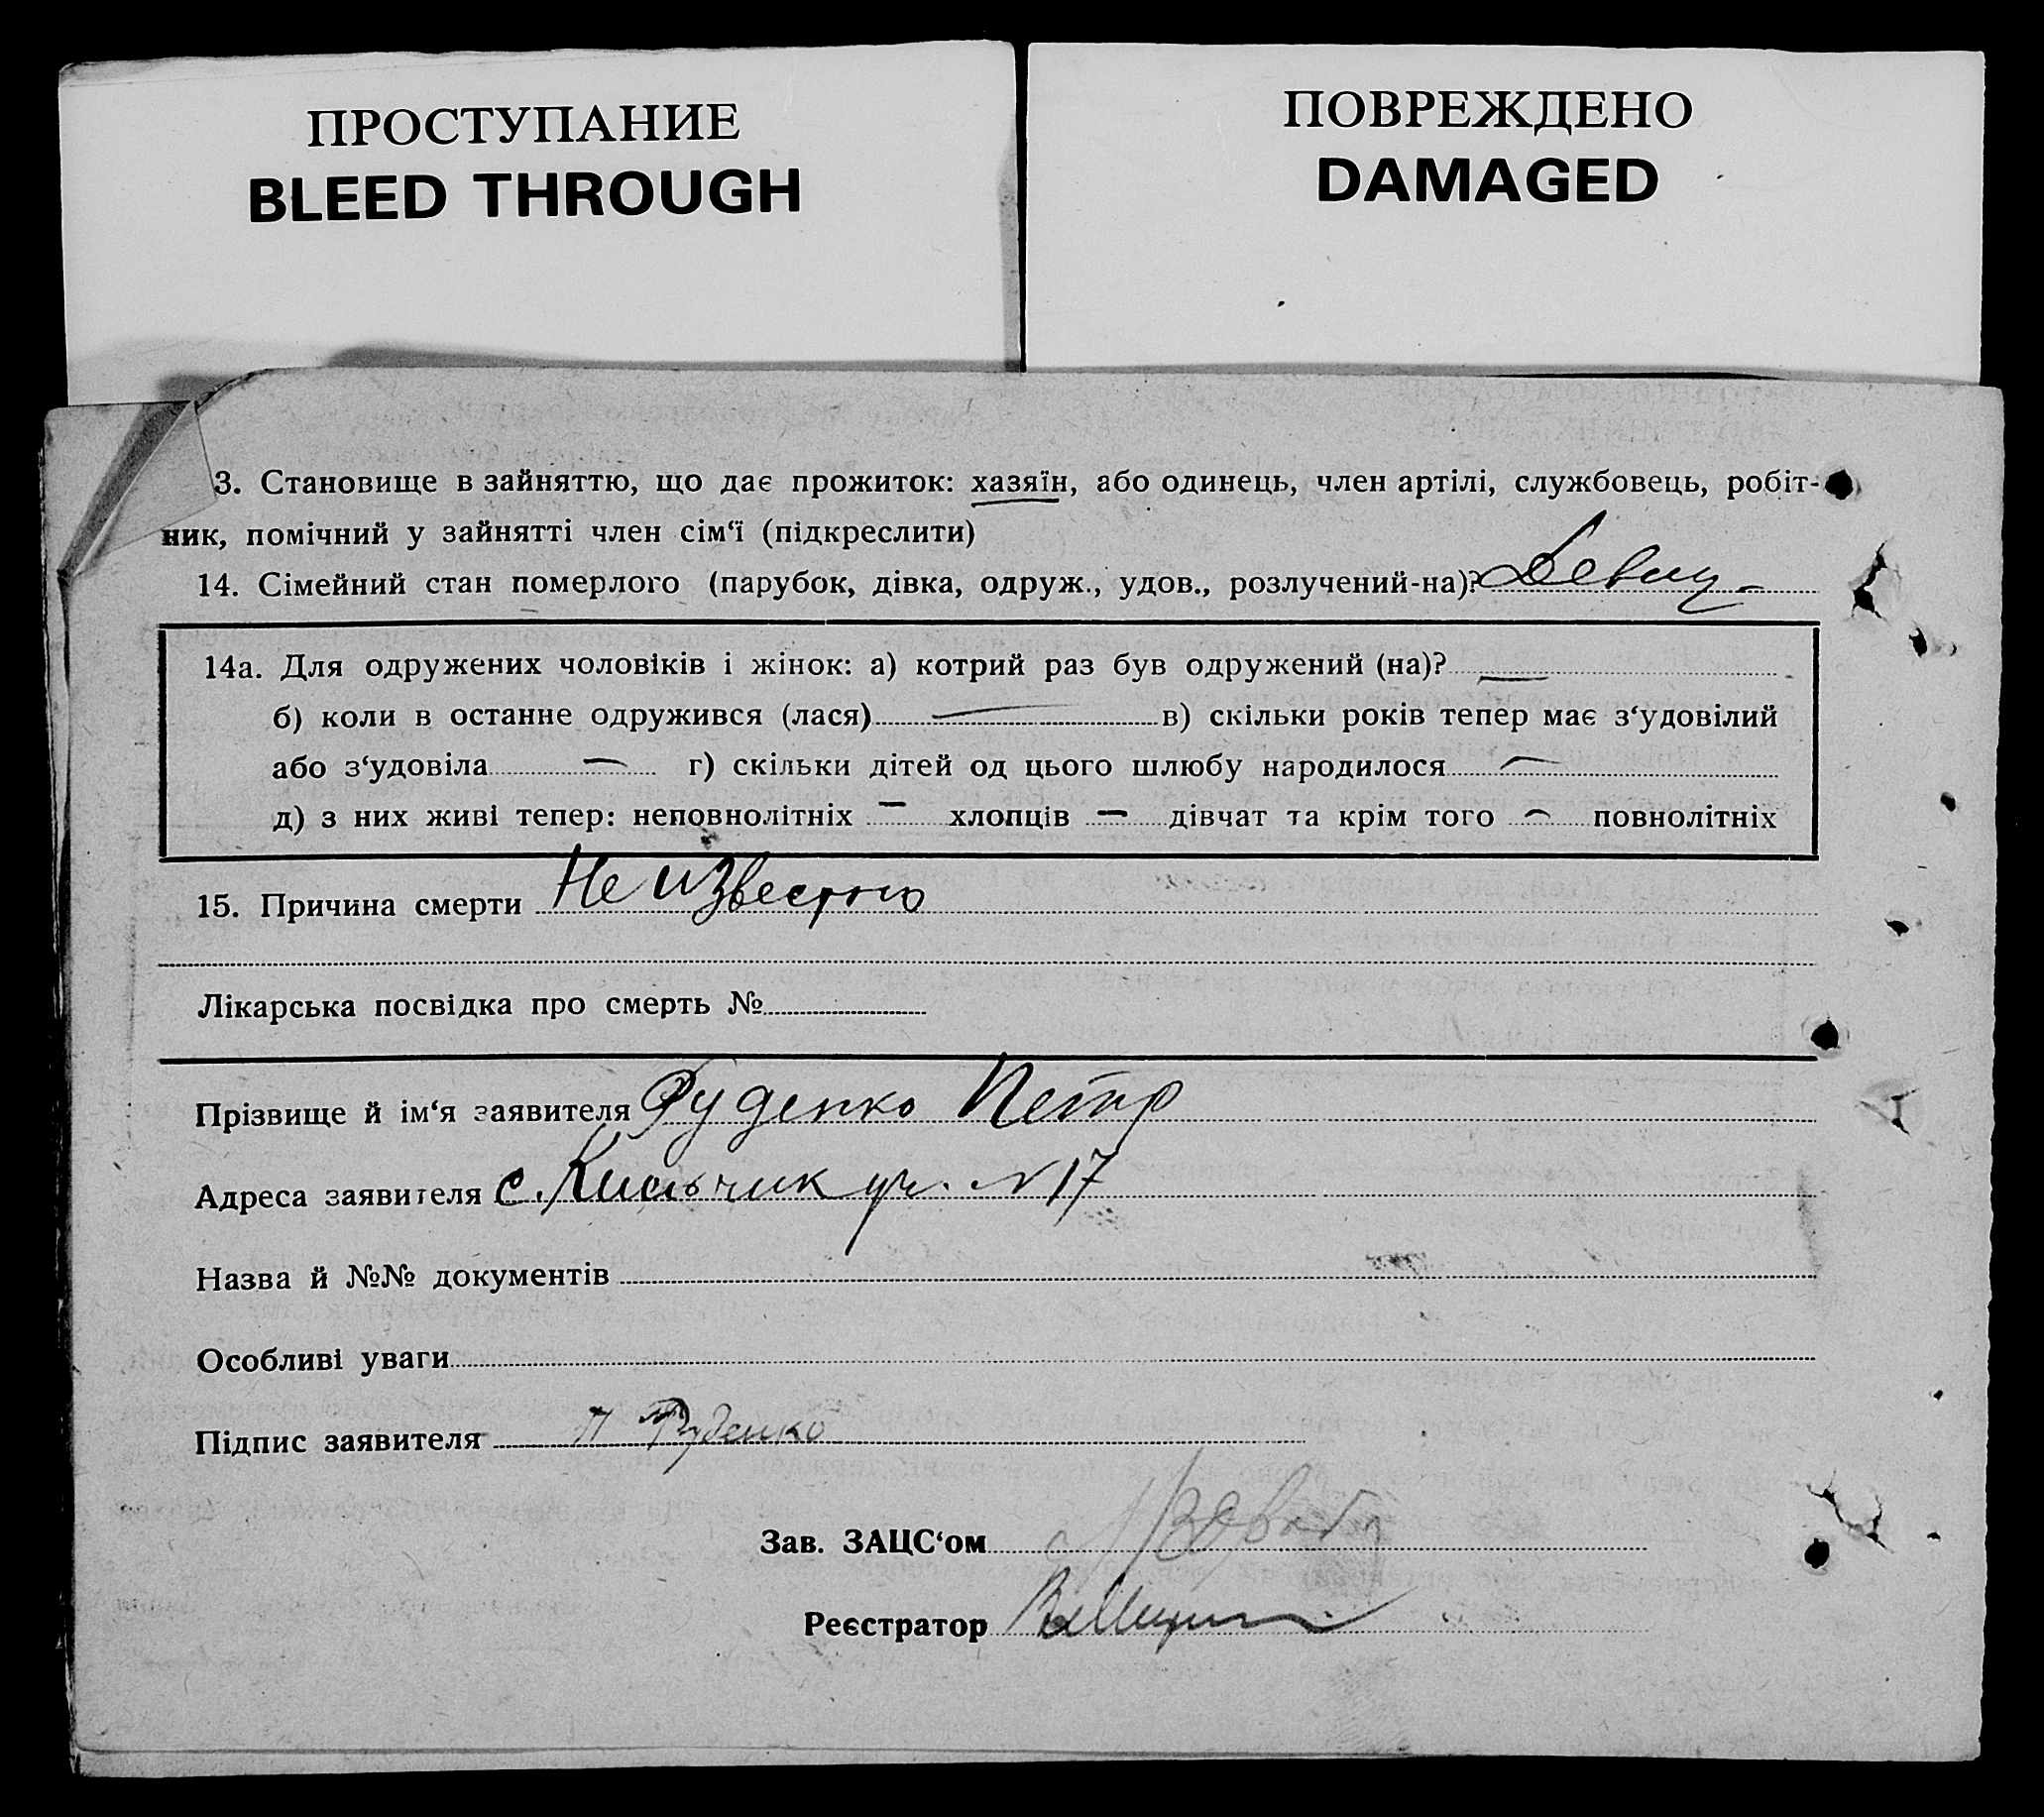 ПРОСТУПАНИЕ
BLEED THROUGH
ПОВРЕЖДЕНО
DAMAGED
3. Становище в зайняттю, що дає прожиток: хазяїн, або одинець, член артілі, службовець, робіт-
ник, помічний у зайнятті член сім‘ї (підкреслити)
14. Сімейний стан померлого (парубок, дівка, одруж., удов., розлучений-на)? Девиц
14а. Для одружених чоловіків і жінок: а) котрий раз був одружений (на)? —
б) коли в останнє одружився (лася) — в) скільки років тепер має з‘удовілий
або з‘удовіла — г) скільки дітей од цього шлюбу народилося —
д) з них живі тепер: неповнолітніх — хлопців — дівчат та крім того — повнолітніх
15. Причина смерти Не известно
Лікарська посвідка про смерть №
Прізвище й ім‘я заявителя Руденко Петр
Адреса заявителя с. уч. №17
Назва й №№ документів
Особливі уваги
Підпис заявителя П Руденко
Зав. ЗАЦС‘ом
Реєстратор